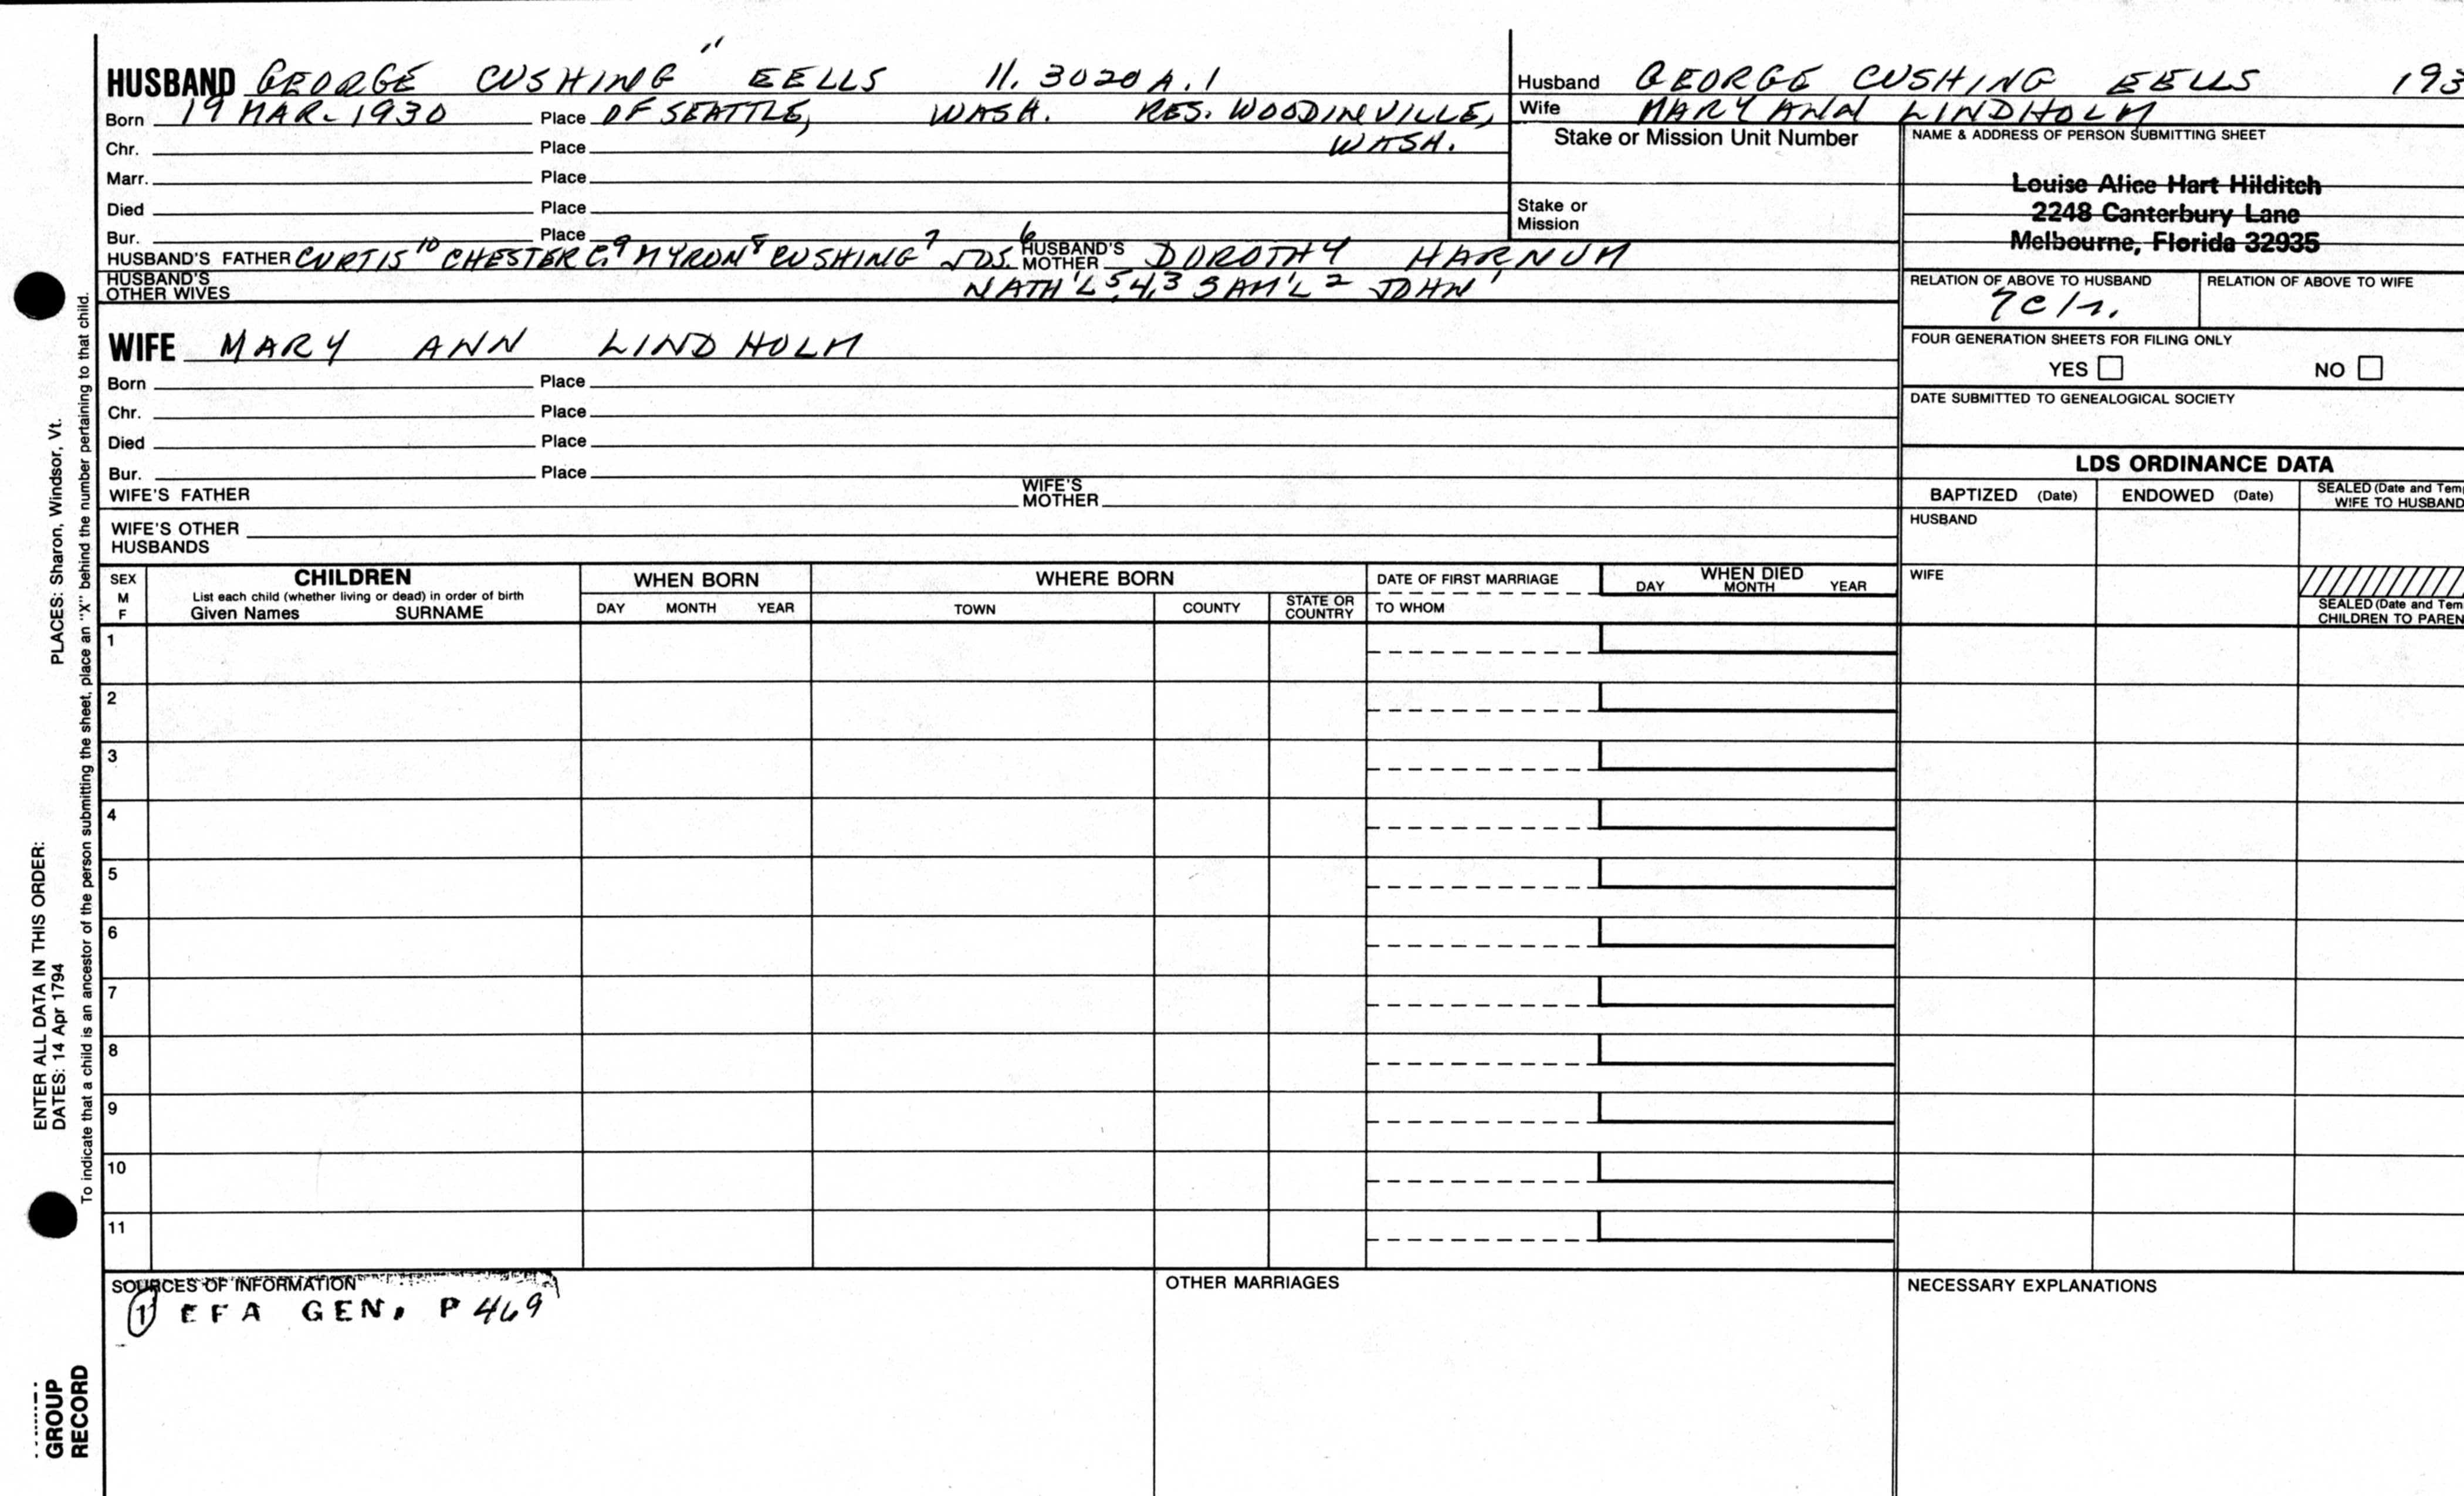 HUSBAND GEORGE CUSHING " EELLS 11. 3020A.1
Born 19 MAR. 1930 Place OF SEATTLE, WASH. RES. WOODINVILLE,
Chr. Place WASH.
Marr. Place
Died Place
Bur. Place
HUSBAND'S FATHER CURTIS 10 CHESTER C. 9 MYRON 8 CUSHING 7 JOS. 6 HUSBAND'S MOTHER DOROTHY HARNUM
HUSBAND'S OTHER WIVES NATH'L 5,4,3 SAM'L 2 JOHN 1
WIFE MARY ANN LINDHOLM
Born Place
Chr. Place
Died Place
Bur. Place
WIFE'S FATHER WIFE'S MOTHER
WIFE'S OTHER HUSBANDS
Husband GEORGE CUSHING EELLS 193
Wife MARY ANN LINDHOLM
Stake or Mission Unit Number
Stake or Mission
NAME & ADDRESS OF PERSON SUBMITTING SHEET
Louise Alice Hart Hilditch
2248 Canterbury Lane
Melbourne, Florida 32935
RELATION OF ABOVE TO HUSBAND RELATION OF ABOVE TO WIFE
FOUR GENERATION SHEETS FOR FILING ONLY
YES NO
DATE SUBMITTED TO GENEALOGICAL SOCIETY
LDS ORDINANCE DATA
BAPTIZED (Date) ENDOWED (Date) SEALED (Date and Tem
WIFE TO HUSBAND
HUSBAND
WIFE
SEALED (Date and Tem
CHILDREN TO PAREN
SEX M F
CHILDREN
List each child (whether living or dead) in order of birth
Given Names SURNAME
WHEN BORN
DAY MONTH YEAR
WHERE BORN
TOWN COUNTY STATE OR COUNTRY
DATE OF FIRST MARRIAGE
TO WHOM
WHEN DIED
DAY MONTH YEAR
1
2
3
4
5
6
7
8
9
10
11
SOURCES OF INFORMATION
1 EFA GEN. P 469
OTHER MARRIAGES
NECESSARY EXPLANATIONS
ENTER ALL DATA IN THIS ORDER:
DATES: 14 Apr 1794 PLACES: Sharon, Windsor, Vt.
To indicate that a child is an ancestor of the person submitting the sheet, place an "X" behind the number pertaining to that child.
GROUP
RECORD